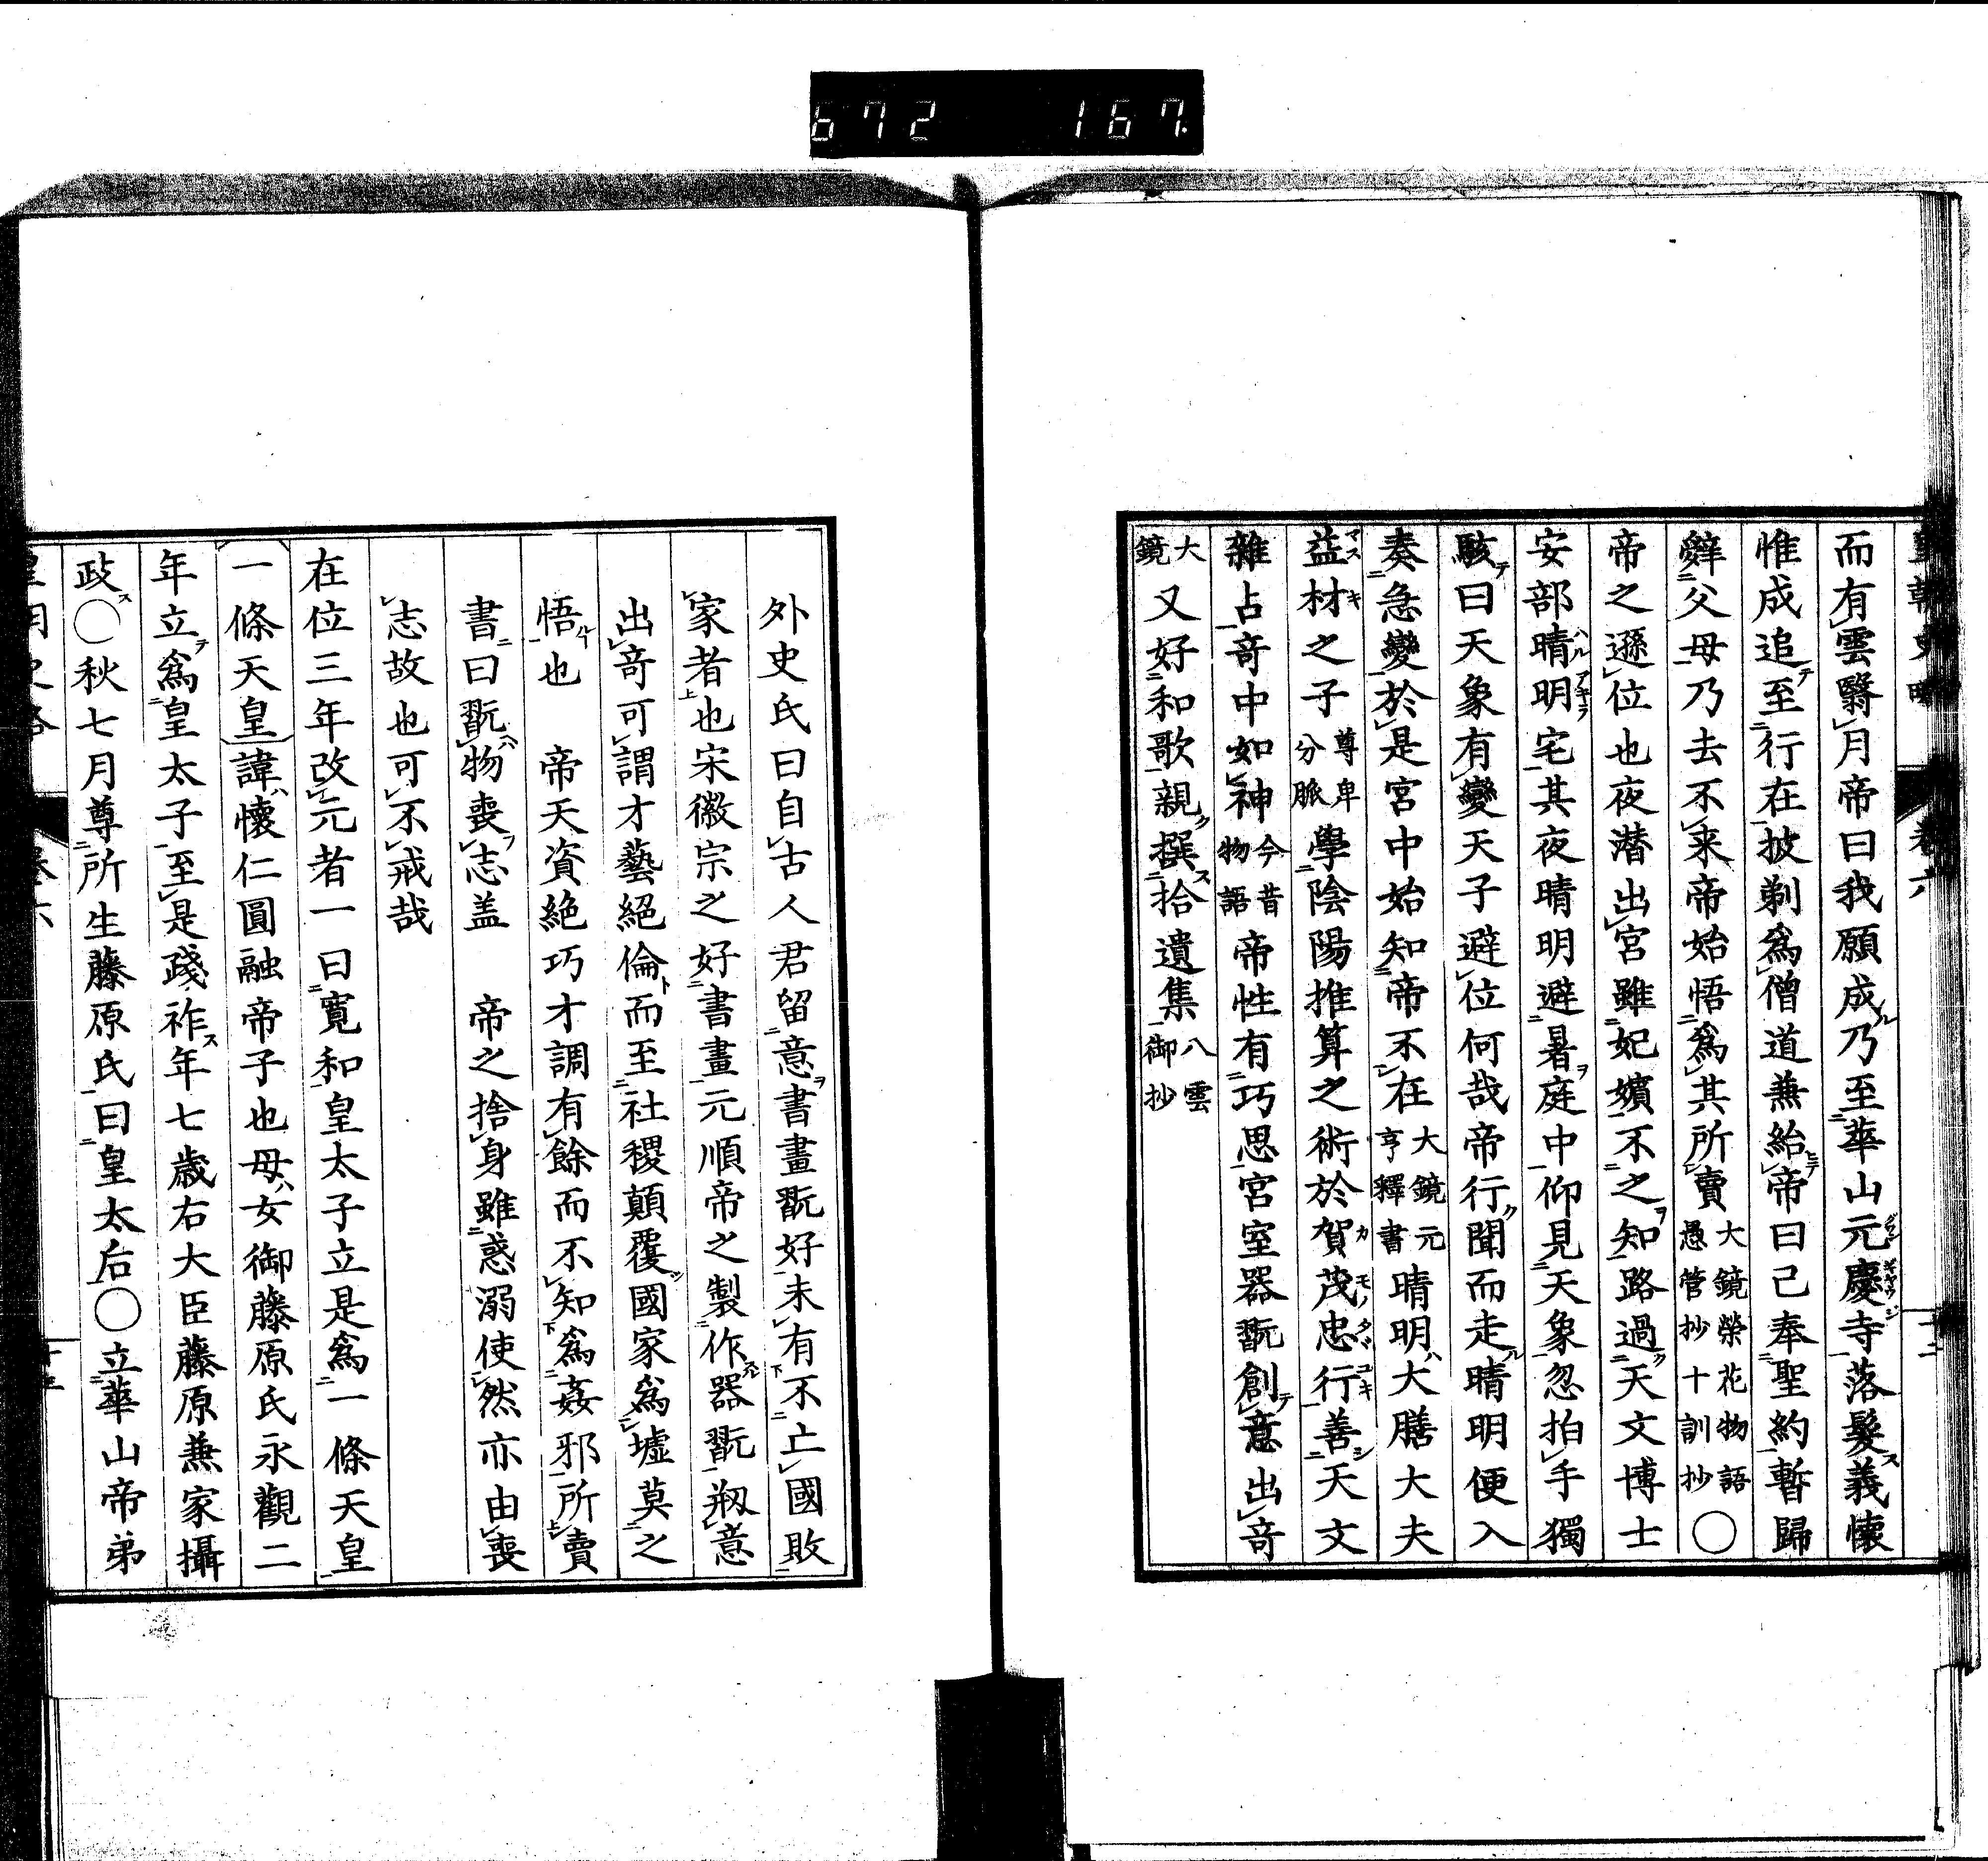 672 167
皇朝史略 卷六 十二
而有雲翳月帝曰我願成乃至華山元慶寺落髮義懷
惟成追至行在披剃爲僧道兼紿帝曰己奉聖約暫歸
辭父母乃去不来帝始悟爲其所賣大鏡榮花物語愚管抄十訓抄〇
帝之遜位也夜潜出宮雖妃嬪不之知路過天文博士
安部晴明宅其夜晴明避暑庭中仰見天象忽拍手獨
駭曰天象有變天子避位何哉帝行聞而走晴明便入
奏急變於是宮中始知帝不在大鏡元亨釋書晴明大膳大夫
益材之子尊卑分脈學陰陽推算之術於賀茂忠行善天文
雜占奇中如神今昔物語帝性有巧思宮室器翫創意出奇
大鏡又好和歌親撰拾遺集八雲御抄
外史氏曰自古人君留意書畫翫好未有不亡國敗
家者也宋徽宗之好書畫元順帝之製作器翫刱意
出奇可謂才藝絕倫而至社稷顛覆國家爲墟莫之
悟也 帝天資絶巧才調有餘而不知爲姦邪所賣
書曰翫物喪志盖 帝之捨身雖惑溺使然亦由喪
志故也可不戒哉
在位三年改元者一曰寬和皇太子立是爲一條天皇
一條天皇諱懷仁圓融帝子也母女御藤原氏永觀二
年立爲皇太子至是踐祚年七歳右大臣藤原兼家攝
政〇秋七月尊所生藤原氏曰皇太后〇立華山帝弟